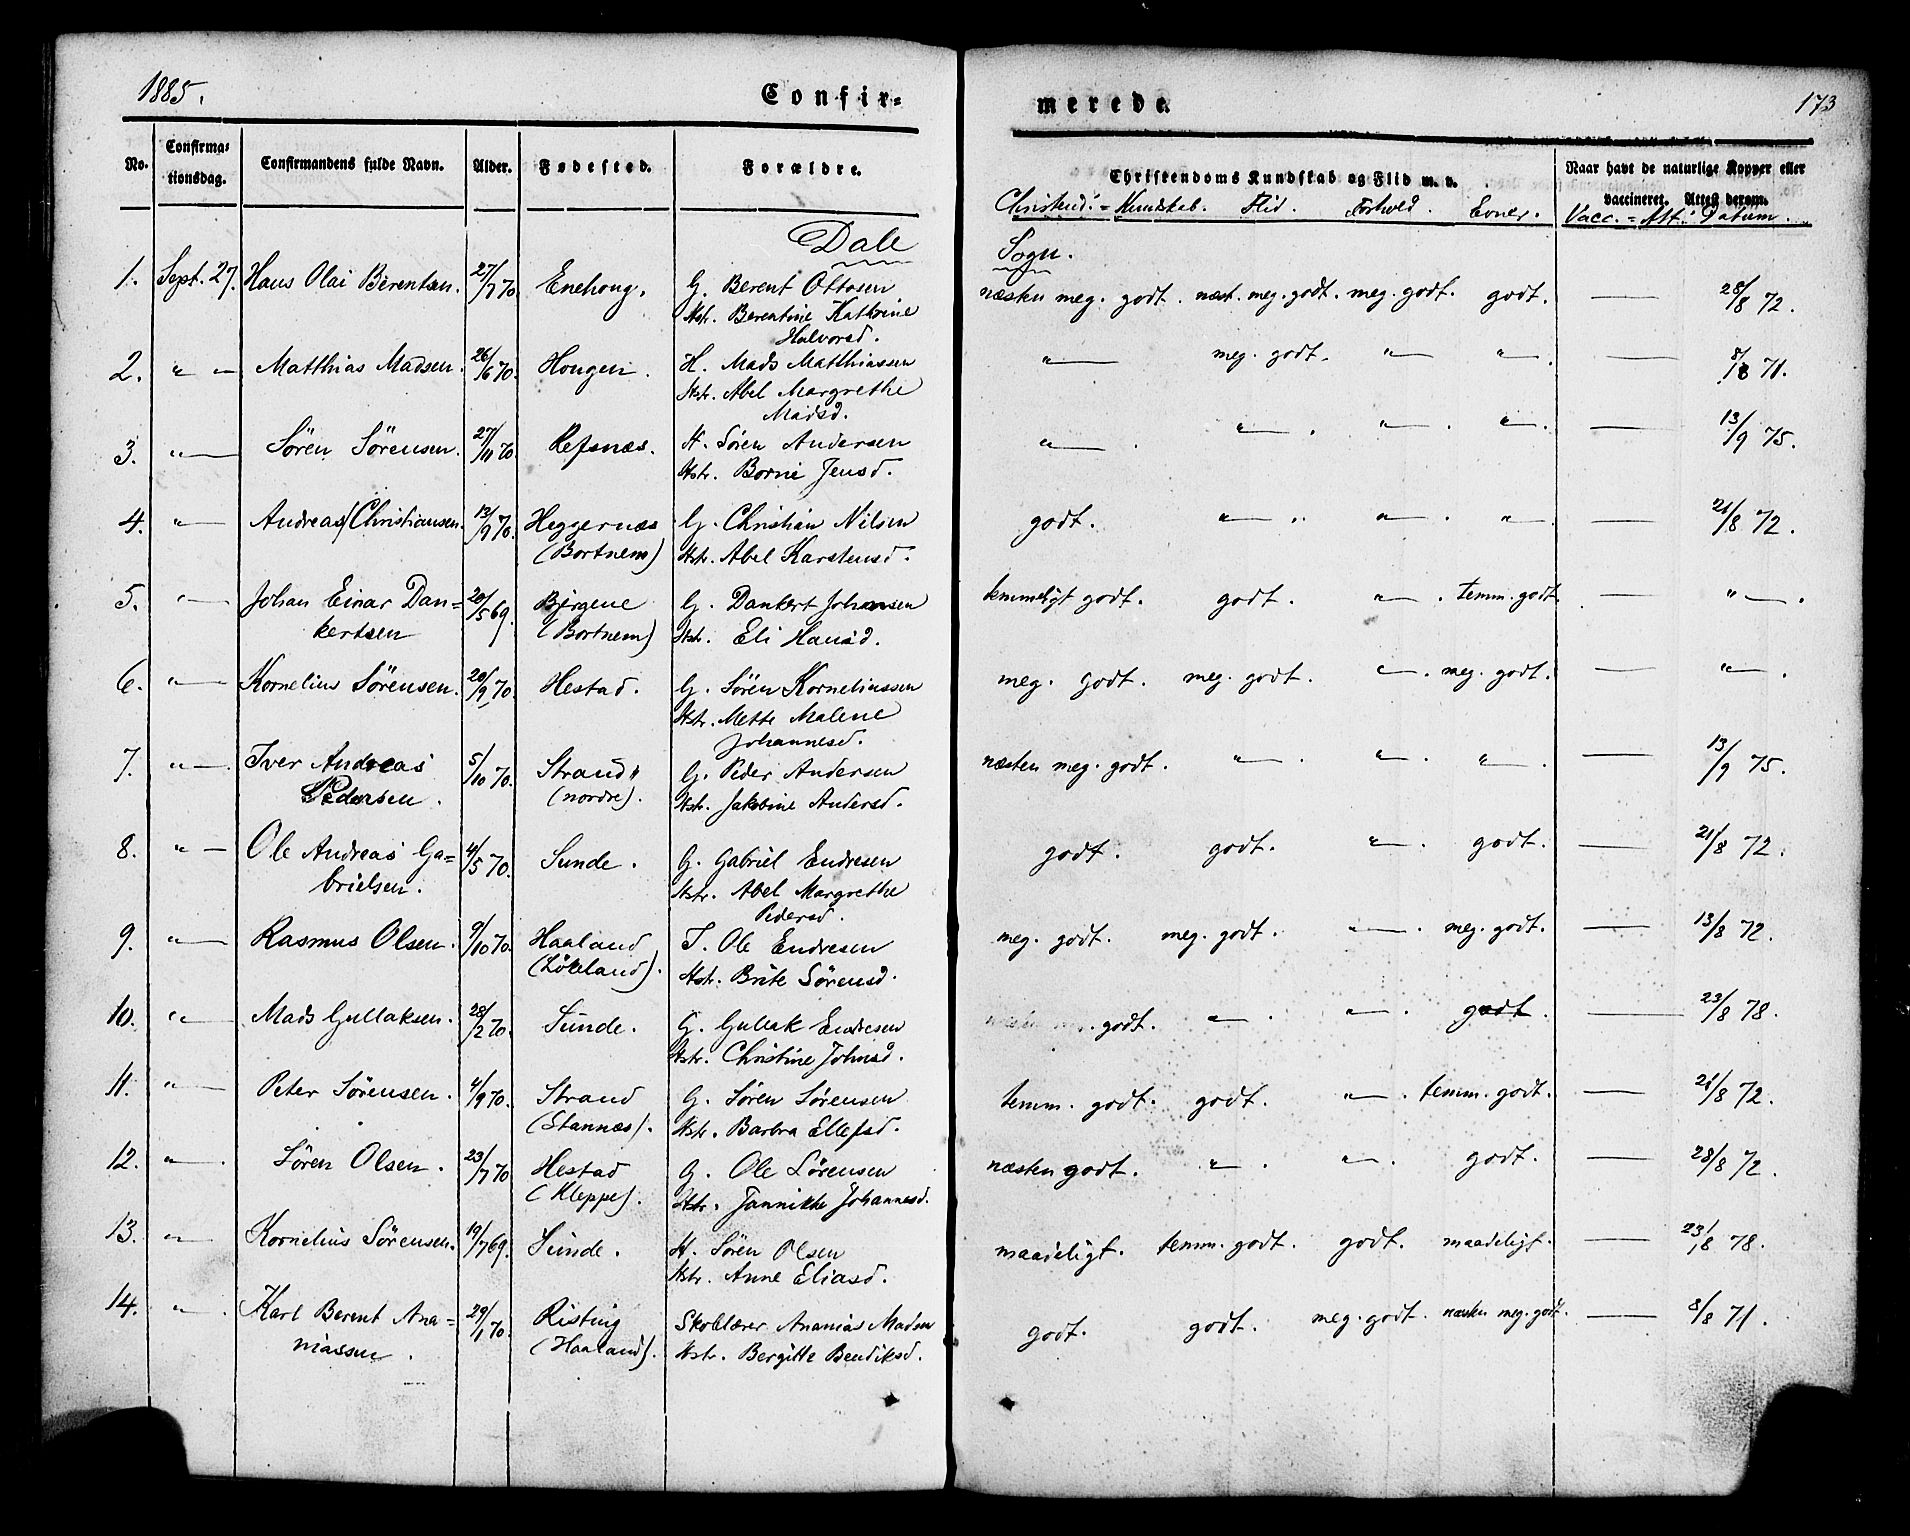 1885.
Confir-
merede.
173
No.
Confirma-
tionsdag.
Confirmandens fulde Navn.
Alder.
Fødested.
Forældre.
Christendoms Kundskab og Flid m. v.
Naar havt de naturlige Kopper eller
vaccineret. Attest derom.
Christend.=Kundskab. Flid. Forhold. Evner. Vacc.=Att.' Datum.
Dale Sogn.
1. Sept. 27. Hans Olai Berentsen. 27/7 70. Enehoug. G. Berent Ottosen næsten meg. godt. næst. meg. godt. meg. godt. godt. — 28/8 72.
Kstr. Berentine Kathrine
Halvorsd.
2. " — Matthias Madsen. 26/6 70. Hougen. H. Mads Matthiassen "— meg. godt. "— "—. — 8/8 71.
Kstr. Abel Margrethe
Madsd.
3. "— Sören Sörensen. 27/11 70. Refsnæs. H. Sören Andersen "— "—. "—. "—. — 13/9 75.
Kstr. Borni Jensd.
4. "— Andreas Christiansen. 13/9 70. Heggernæs G. Christian Nilsen godt. "— . "—. "—. — 21/8 72.
(Bortnem) Kstr. Abel Karstensd.
5. "— Johan Einar Dan= 20/5 69. Björgene G. Dankert Johansen temmeligt godt. godt. "—. temm. godt. — "—.
kertsen (Bortnem) Kstr. Eli Hansd.
6. "— Kornelius Sörensen. 20/9 70. Hestad. G. Sören Korneliussen meg. godt. meg. godt. "—. meg. godt. — "—.
Kstr. Mette Malene
Johannesd.
7. "— Iver Andreas 5/10 70. Strand G. Peder Andersen næsten meg. godt. "—. "—. "—. — 13/9 75.
Pedersen. (nordre). Kstr. Jakobine Andersd.
8. "— Ole Andreas Ga= 4/5 70. Sunde. G. Gabriel Endresen godt. godt. "—. godt. — 21/8 72.
brielsen. Kstr. Abel Margrethe
Pedersd.
9. "— Rasmus Olsen. 9/10 70. Haaland I. Ole Endresen meg. godt. meg. godt. "—. meg. godt. — 13/8 72.
(Lökeland). Kstr. Brite Sörensd.
10. "— Mads Gullaksen. 28/2 70. Sunde. G. Gullak Endresen godt. "—. "—. godt. — 23/8 78.
Kstr. Christine Johnsd.
11. "— Peter Sörensen. 4/9 70. Strand G. Sören Sörensen temm. godt. godt. "—. temm. godt. — 21/8 72.
(Stannæs). Kstr. Barbra Ellefsd.
12. "—. Sören Olsen. 23/7 70 Hestad G. Ole Sörensen næsten godt. "—. "—. godt. — 28/8 72.
(Kleppe). Kstr. Jannikke Johannesd.
13. "— Kornelius Sörensen. 19/7 69. Sunde. H. Sören Olsen maadeligt. temm. godt. godt. maadeligt. — 23/8 78.
Kstr. Anne Eliasd.
14. "—. Karl Berent Ana= 29/1 70. Risting Skolelærer Ananias Madsen godt. godt. meg. godt. næsten meg. godt. — 8/8 71.
niassen. (Haaland). Kstr. Bergitte Bendiksd.